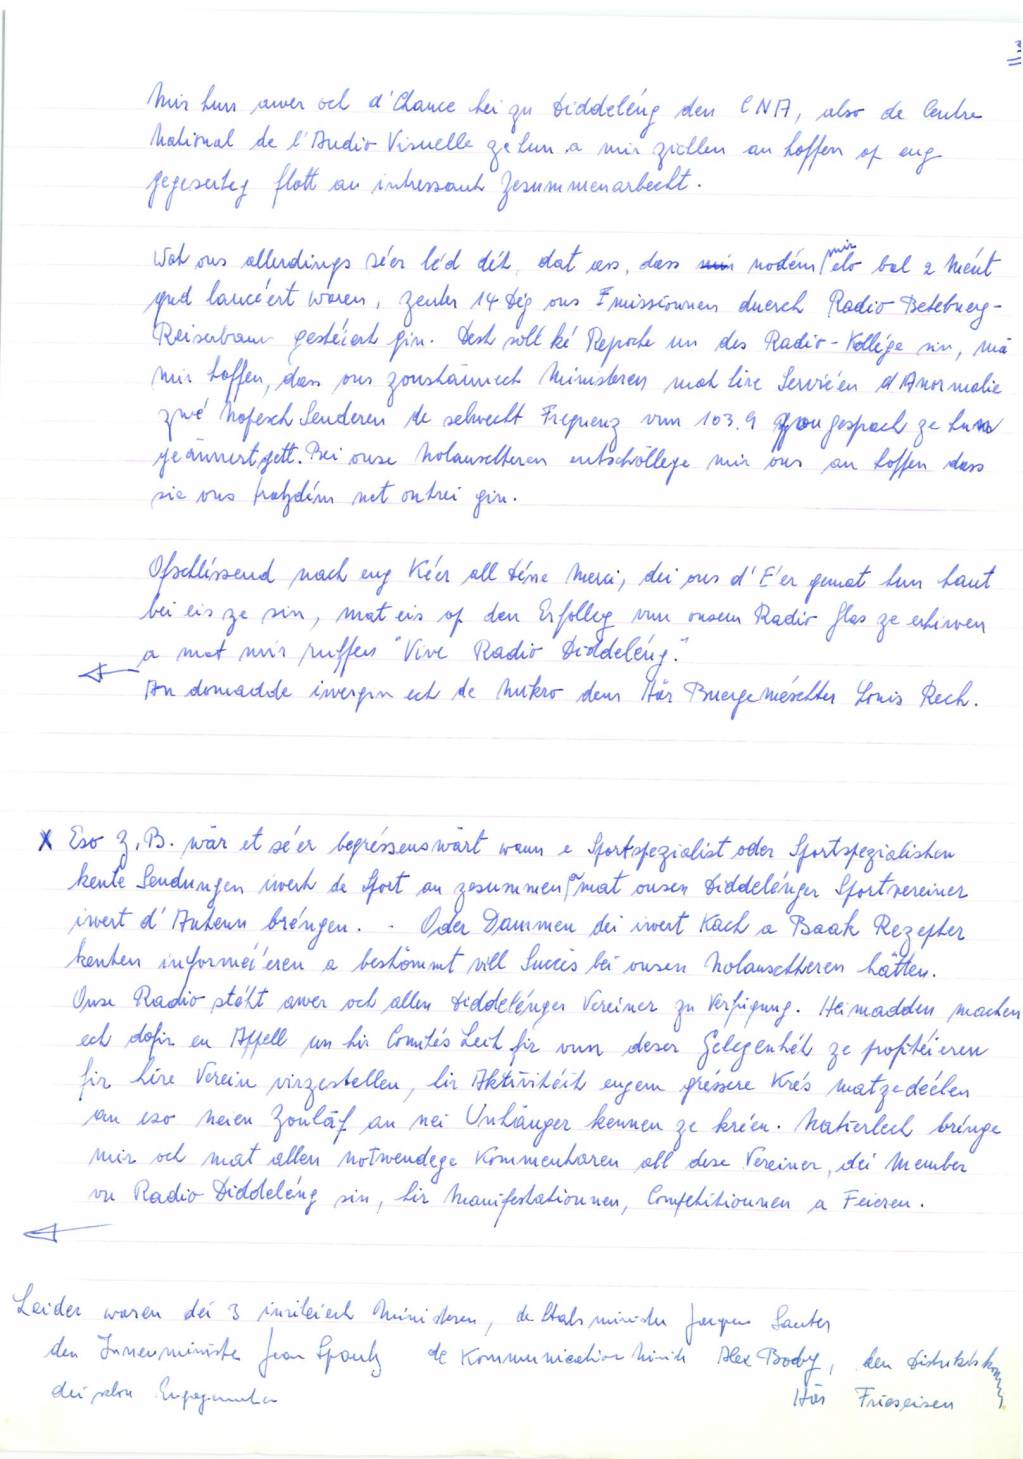 3
Mir hun awer och d'Chance hei zu Diddeléng den CNA, also de Centre
National de l'Audio Visuelle ze hun a mir zielen an hoffen op eng
gegeseiteg flott an intressant Zesummenarbecht.
Wat ons allerdings séer léd dét, dat ass, dass nodém mir elo bal 2 Mént
gud lancéiert waren, zenter 14 Deg ons Emissiounen duerch Radio Beteburg-
Reiserbann gestéiert gin. Dest soll ké Reproche un des Radio-Kollège sin, mä
mir hoffen, dass ons zoustännech Ministeren mat hire Servicen d'Anormalie
zwé Nopesch Senderen de selwecht Frequenz vun 103.9 zougesprach ze hun
geännert gett. Bei onse Nolauschteren entschöllege mir ons an hoffen dass
sie ons trotzdém net ontrei gin.
Ofschléssend nach eng Kéer all déne Merci, déi ons d'E'er gemat hun haut
bei eis ze sin, mat eis op den Erfolleg vun onsem Radio Glas ze erhiewen
a mat mir ruffen "Vive Radio Diddeléng".
An domadde iwergin ech de Mikro dem Här Buergeméschter Louis Rech.
X Eso z.B. wär et séer begréssenswärt wann e Sportspezialist oder Sportspezialisten
kente Sendungen iwert de Sport an zesummen mat onsen Diddelénger Sportvereiner
iwert d'Antenn bréngen. - Oder Dammen déi iwert Kach a Baak Rezepter
kenten informéieren a bestömmt vill Succès bei onsen Nolauschteren hätten.
Onse Radio stéht awer och allen Diddelénger Vereiner zu Verfügung. Heimadden machen
ech dofir en Appell un hir Comités Leit fir vun deser Gelegenhét ze profitéieren
fir hire Verein virzestellen, hir Aktivitéit engem gréssere Krés matzedéelen
an eso neien Zouläf an nei Unhänger kennen ze kréen. Natierlech bringe
mir och mat allen notwendege Kommentaren all dese Vereiner, déi Member
vu Radio Diddeléng sin, hir Manifestatiounen, Competitiounen a Feieren.
Leider waren déi 3 invitéiert Ministeren, de Stats minister Jacques Santer
den Innenminister Jean Spautz de Kommunication Minister Alex Bodry, den Distriktskomm
déi schon Engagementer Här Frieseisen